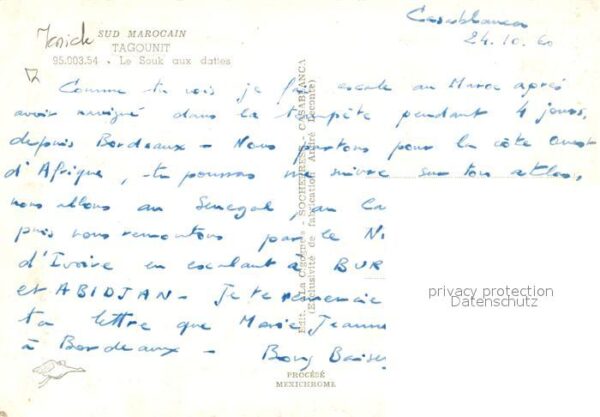 Casablanca
24.10.60
SUD MAROCAIN
TAGOUNIT
95.003.54 - Le Souk aux dattes
Comme tu vois je fais escale au Maroc après
avoir navigué dans la tempête pendant 4 jours,
depuis Bordeaux - Nous partons pour la côte ouest
d'Afrique, tu pourras me suivre sur ton atlas,
nous allons au Sénégal, au Ca
puis nous remontons par le Ni
d'Ivoire en escalant à BUR
et ABIDJAN - Je te remercie
ta lettre que Marie Jeanne
à Bordeaux - Bons Baiser
Edit. "La Cigogne" - SOCHEPRESS - CASABLANCA
(Exclusivité de fabrication André Leconte)
privacy protection
Datenschutz
PROCÉDÉ
MEXICHROME